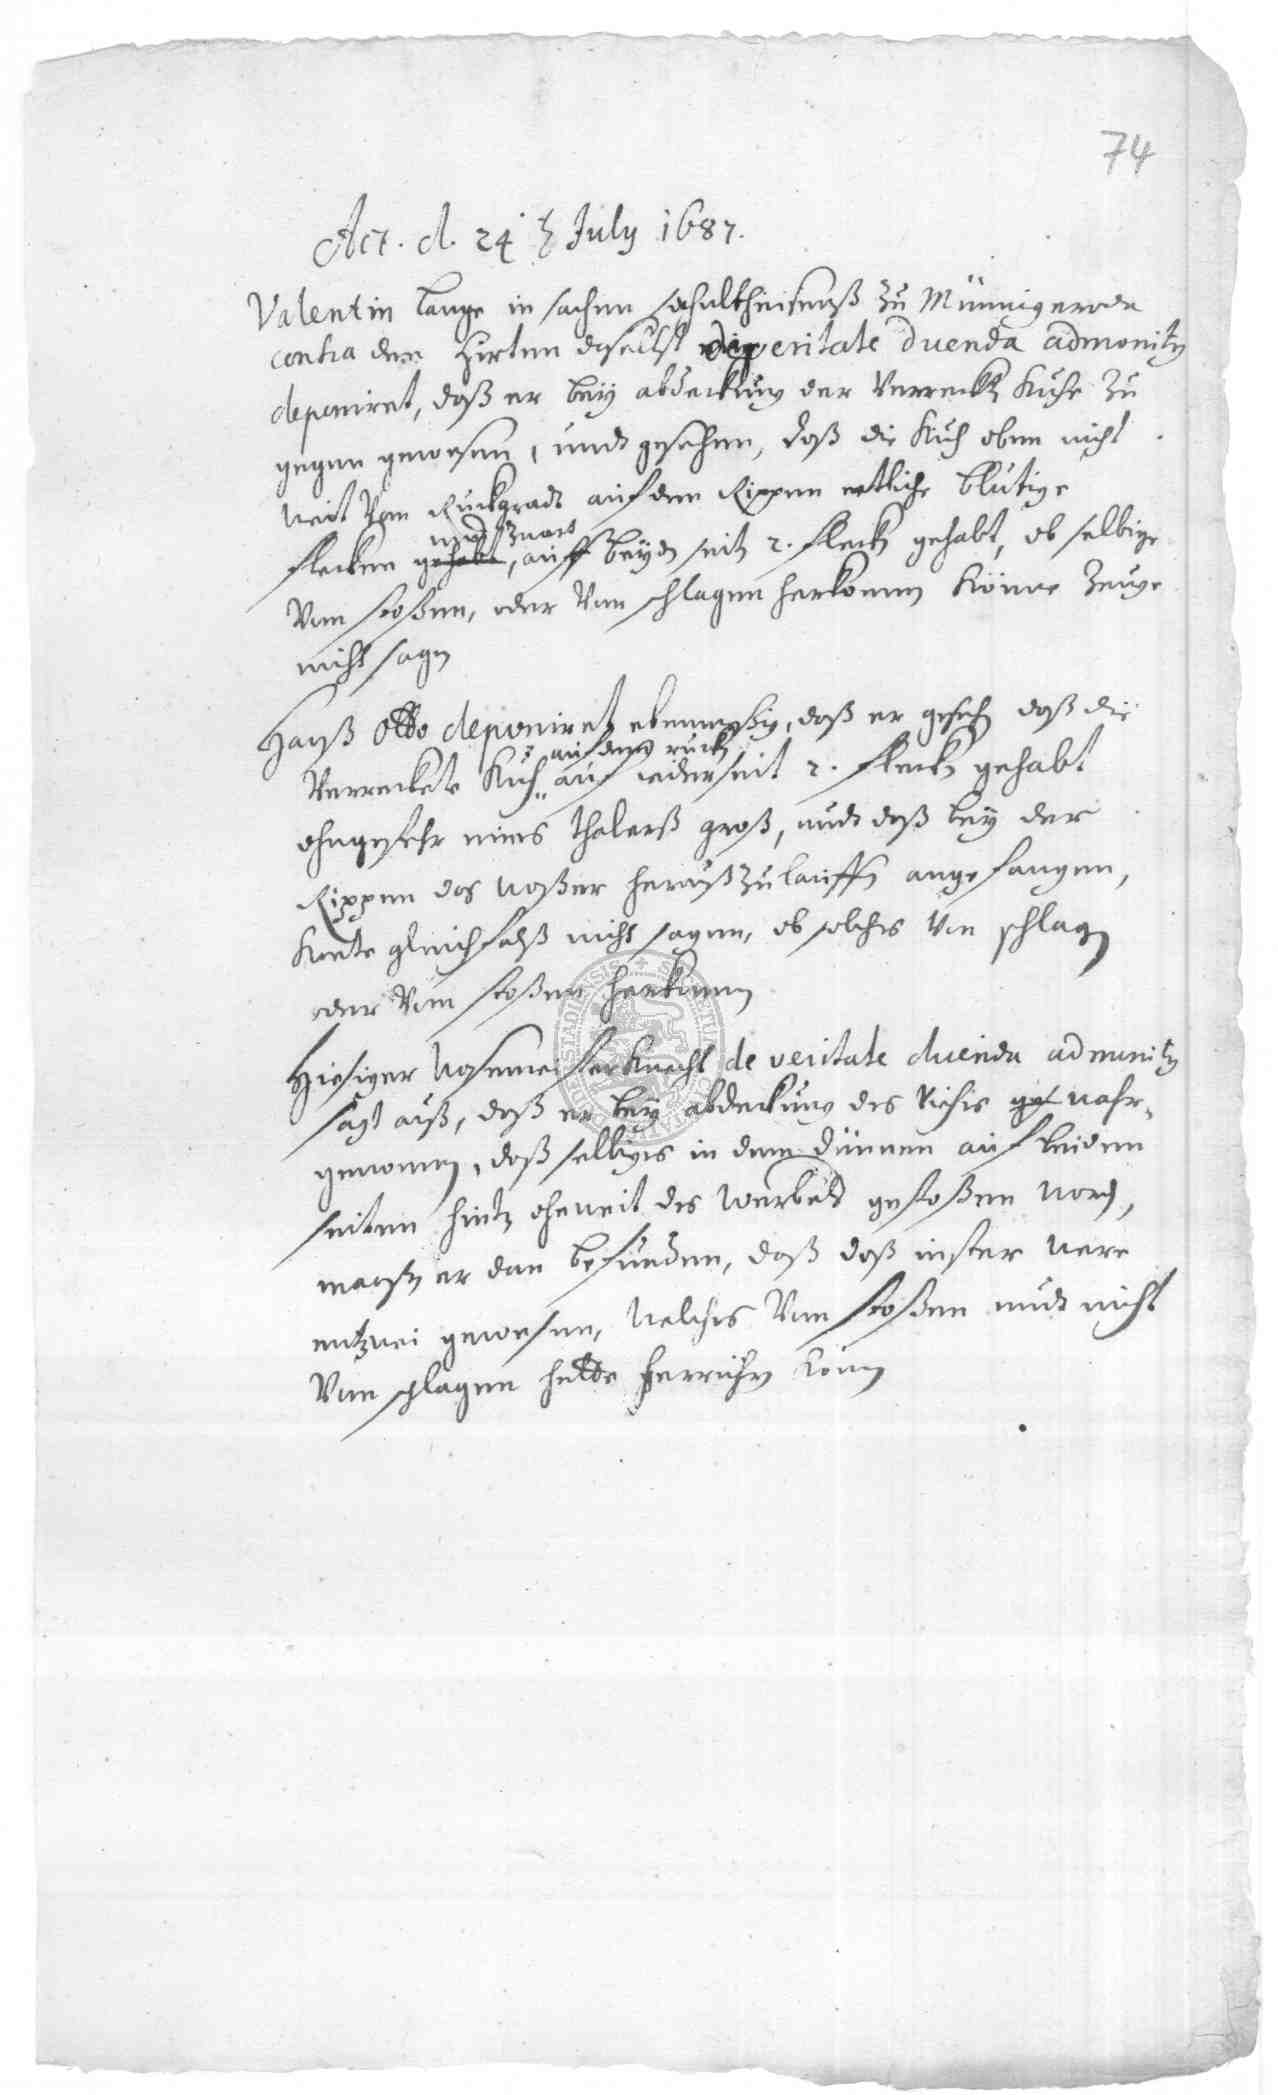 74
Act. d. 24 t July 1687.
Valentin Lange in sachen schultheissens zu Münnigerode
contra den Hirten daselbst de veritate dicenda admonitus
deponiret, daß er bey abdeckung der verreckten Kuhe zu
gegen gewesen, undt gesehen, daß die Kuh oben nicht
weit vom Ruckgradt auf den Rippen etliche blutige
flecken gehabt, undt zwars auff beyden seiten 2. flecken gehabt, ob selbige
vom stoßen, oder von schlagen herkommen könne Zeuge
nicht sagen
Hanß Otto deponiret ebenmeßig, daß er gesehen daß die
verreckete Kuh auf dem rucken auf ieder seit 2. flecken gehabt
ohngefehr eines thalerß groß, undt daß bey der
Rippen das waßer herauß zu lauffen angefangen,
konte gleichfalß nicht sagen, ob solches von schlagen
oder vom stoßen herkommen
Hiesiger Wasenmeister Knecht de veritate dicenda admonitus
sagt auß, daß er bey abdeckung des Viehes wahr-
genommen, daß selbiges in dem dünnen auf beiden
seiten hinten ohnweit des werbels gestoßen worden,
maßen er dan befunden, daß daß inster were
entzwei gewesen, welches vom stoßen undt nicht
vom schlagen hette herrühren können